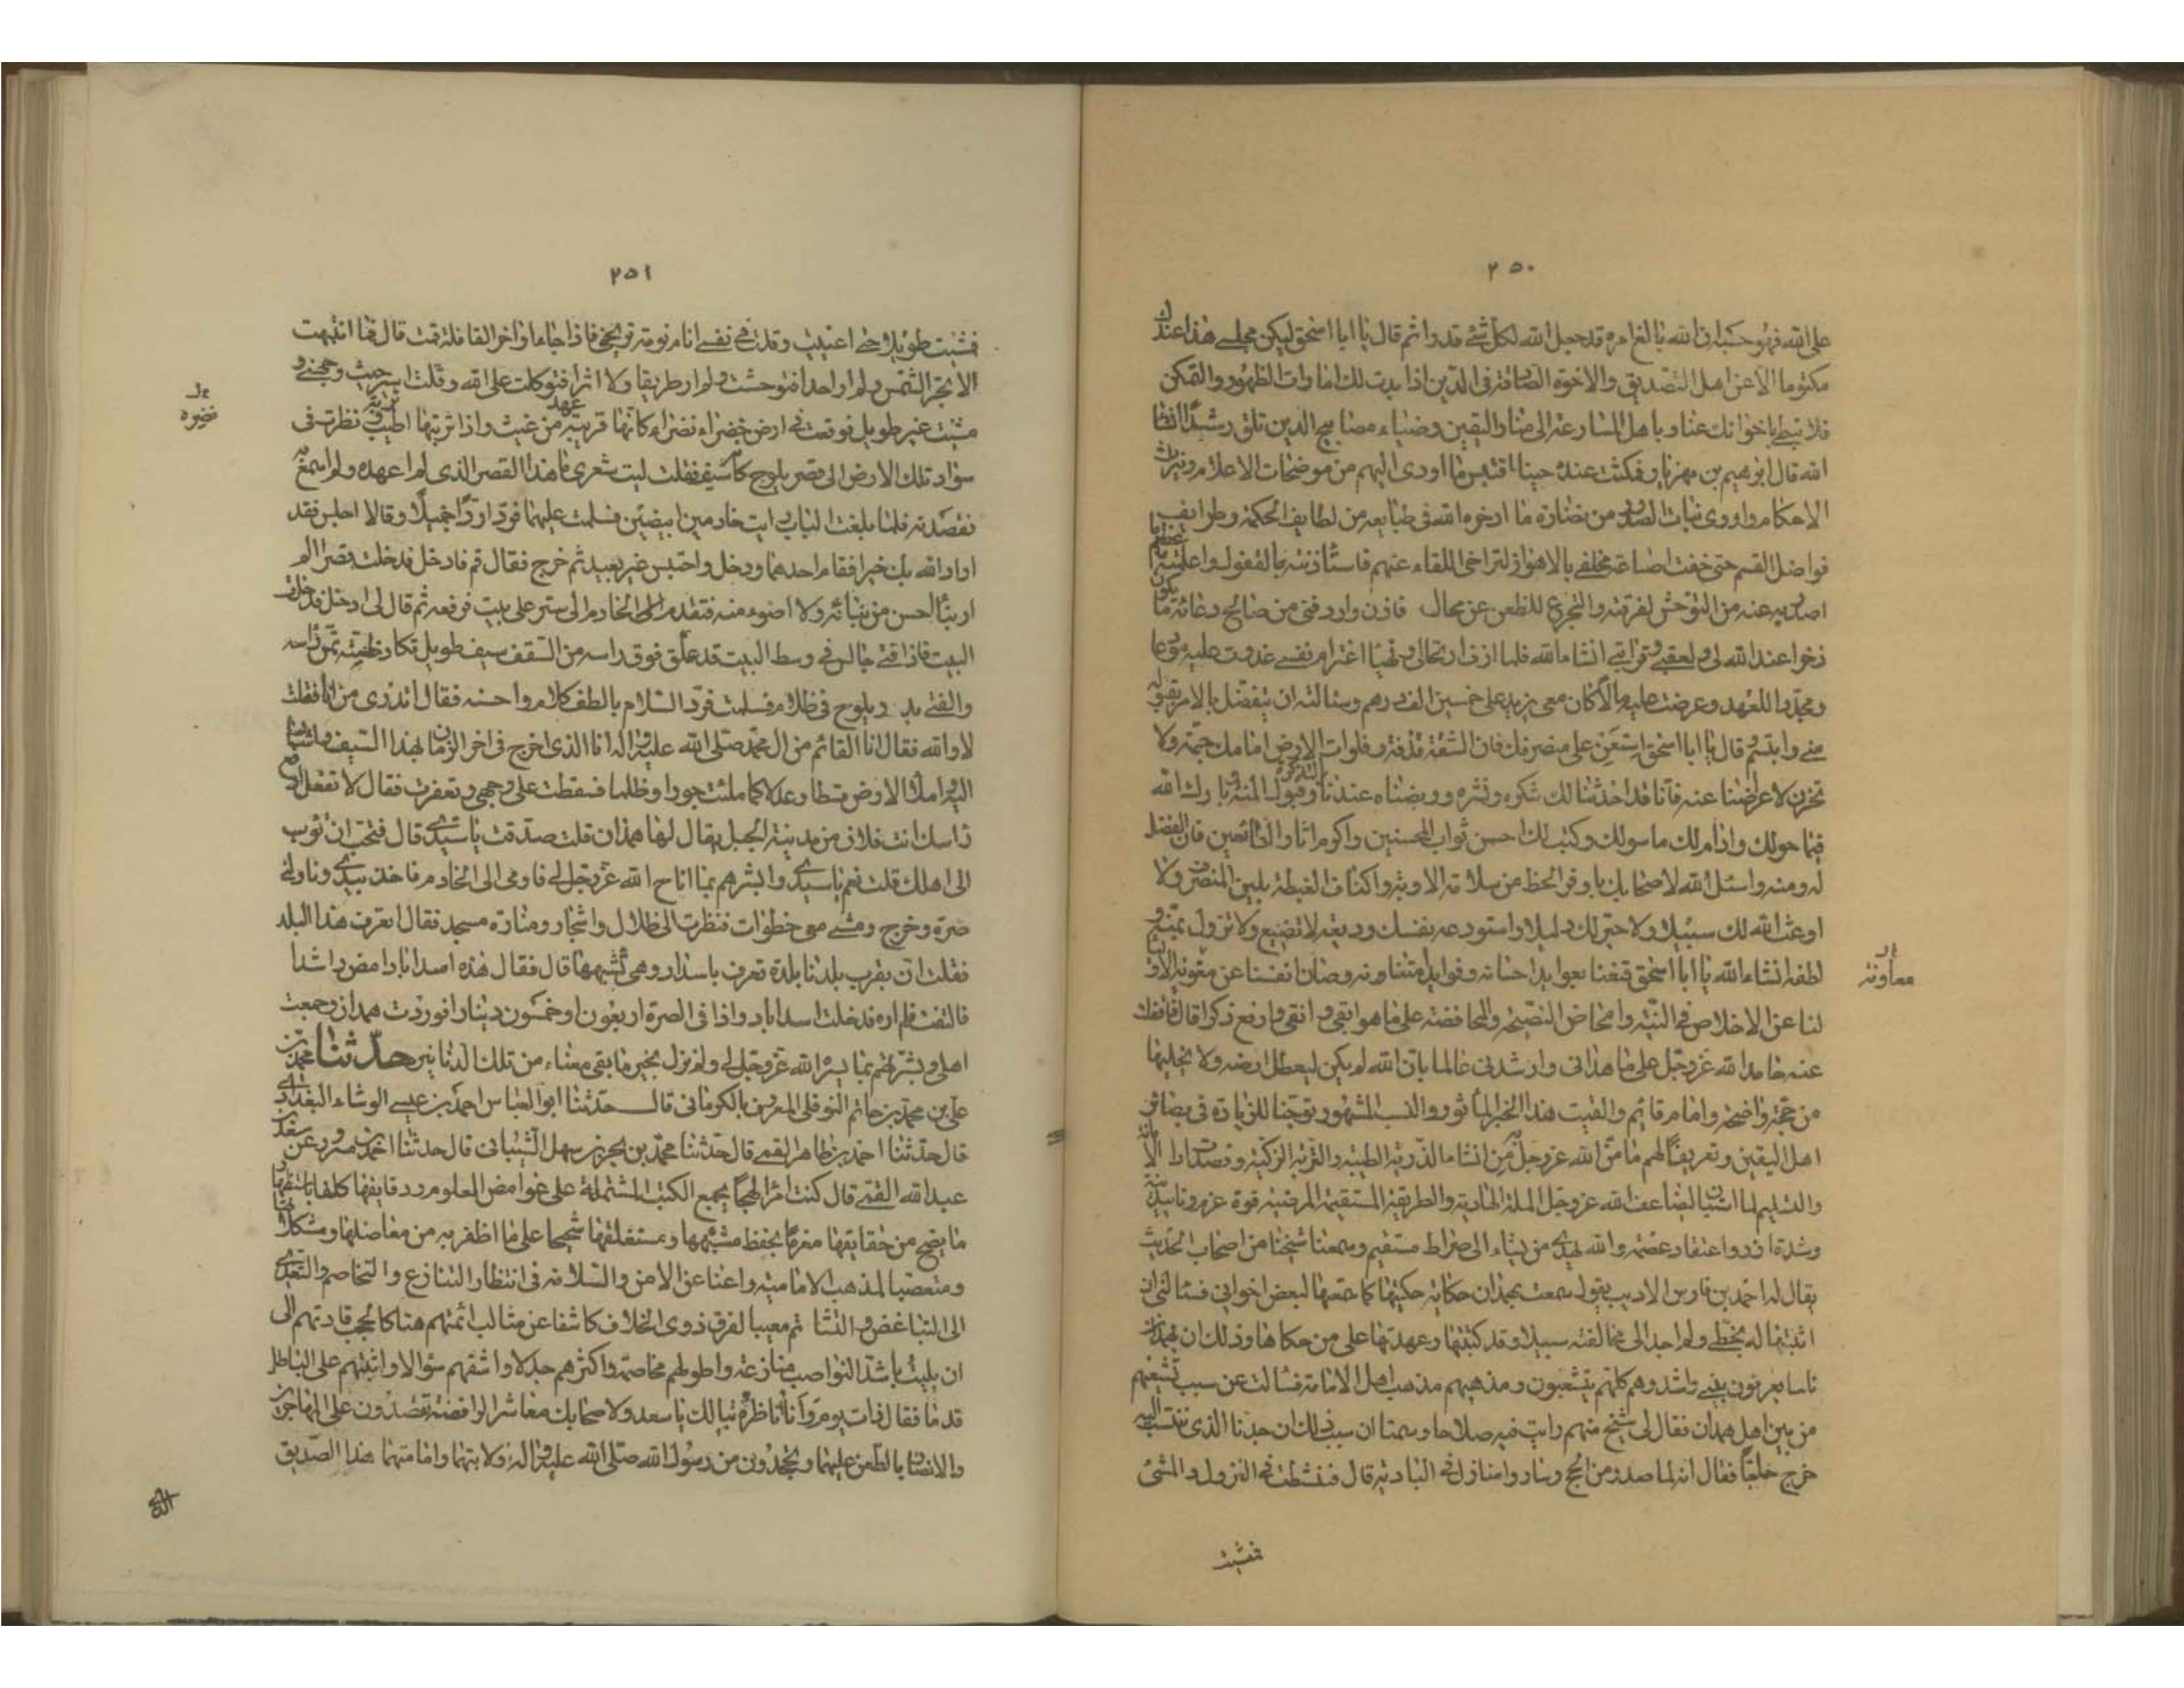 ٢٥٠
على الله فهو حسبه ان الله بالغ امره قد جعل الله لكل شئ قدرا ثم قال يا ابا اسحق ليكن مجلسى هذا عندك
مكتوما الا عن اهل التصديق والاخوة الصادقة فى الدين اذا بدت لك امارات الظهور والتمكن
فلا تبطئ باخوانك عنا وباهل المسارعة الى منار اليقين وضياء مصابيح الدين تلق رشدا انشاء
الله قال ابرهيم بن مهزيار فمكثت عنده حينا اقتبس ما اودى اليهم من موضحات الاعلام ونيرات
الاحكام واروى نبات الصدور من نضارة ما ادخره الله فى طبايعه من لطايف الحكمة وطرايف
فواضل القسم حتى خفت اضاعة مخلفى بالاهواز لتراخى اللقاء عنهم فاستأذنته بالقفول واعلمته عظيم ما
اصدر به عنه من التوحش لفرقته والتجرع للظعن عن محاله فاذن واردفنى من صالح دعائه ما يكون
ذخرا عند الله لى ولعقبى وقرابتى انشاء الله فلما ازف ارتحالى وتهيأ اعتزام نفسى غدوت عليه مودعا
ومجددا للعهد وعرضت عليه مالا كان معى يزيد على خمسين الف درهم وسئالته ان يتفضل بالامر بقبوله
منى وابتسم وقال يا ابا اسحق استعن على منصرفك فان الشقة قذفة وفلوات الارض امامك جمة ولا
تحزن لاعراضنا عنه فانا قد احدثنا لك شكره ونشره وربضناه عندنا بالتذكرة وقبول المنة وبارك الله
فيما خولك وادام لك ما نولك وكتب لك احسن ثواب المحسنين واكرم اثار الطائعين فان الفضل
له ومنه واسئل الله لاصحابك باوفر الحظ من سلامة الاوبة واكناف الغبطة بلين المنصرف ولا
اوعث الله لك سبيلا ولا حير لك دليلا واستودعه نفسك وديعة لا تضيع ولا تزول بمنه و
لطفه انشاء الله يا ابا اسحق قنعنا بعوايد احسانه وفوايد امتنانه وصان انفسنا عن معونة الاولياء
معاونة
لنا عن الاخلاص فى النية وامحاض النصيحة والمحافظة على ما هو ابقى وانقى وارفع ذكرا قال فاقفلت
عنه حامدا لله عز وجل على ما هدانى وارشدنى عالما بان الله لم يكن ليعطل ارضه ولا يخليها
من حجة واضحة وامام قائم والقيت هذا الخبر المأثور والنسب المشهور توخيا للزيادة فى بصائر
اهل اليقين وتعريفا لهم ما من الله عز وجل به من انشاء الذرية الطيبة والتربة الزكية وقصدت اداء الامانة
والتسليم لما استبان ليضاعف الله عز وجل الملة الهادية والطريقة المستقيمة المرضية قوة عزم وتاييد نية
وشدة ازر واعتقاد عصمة والله يهدى من يشاء الى صراط مستقيم وسمعنا شيخنا من اصحاب الحديث
يقال له احمد بن فارس الاديب يقول سمعت بهمدان حكاية حكيتها كما سمعتها لبعض اخوانى فسئالنى ان
اثبتها له بخطى ولم اجد الى مخالفته سبيلا وقد كتبتها وعهدتها على من حكاها وذلك ان بهمدان
ناسا يعرفون ببنى راشد وهم كلهم يتشيعون ومذهبهم مذهب اهل الامامة فسئالت عن سبب تشيعهم
من بين اهل همدان فقال لى شيخ منهم رايت فيه صلاحا وسمتا ان سبب ذلك ان جدنا الذى ننتسب اليه
خرج حاجا فقال انه لما صدر من الحج وساروا منازل فى البادية قال فنشطت فى النزول والمشى
فمشيت
٢٥١
فمشيت طويلا حتى اعييت وقلت فى نفسى انام نومة تريحنى فاذا جاء اواخر القافلة قمت قال فما انتبهت
الا بحر الشمس ولم ار احدا فتوحشت ولم ار طريقا ولا اثرا فتوكلت على الله وقلت اسير حيث وجهنى و
مشيت غير طويل فوقعت فى ارض خضراء نضراء كانها قريبة عهد من غيث واذا تربتها اطيب تربة نظرت فى
نضرة
سواد تلك الارض الى قصر يلوح كانه سيف فقلت ليت شعرى ما هذا القصر الذى لم اعهده ولم اسمع به
فقصدته فلما بلغت الباب رايت خادمين ابيضين فسلمت عليهما فردا ردا جميلا وقالا اجلس فقد
اراد الله بك خيرا فقام احدهما ودخل واحتبس غير بعيد ثم خرج فقال قم فادخل فدخلت قصرا لم
ار بناء احسن من بنائه ولا اضوء منه فتقدم الخادم الى ستر على بيت فرفعه ثم قال لى ادخل فدخلت
البيت فاذا فتى جالس فى وسط البيت قد علق فوق راسه من السقف سيف طويل تكاد ظبته تمس راسه
والفتى بدر يلوح فى ظلام فسلمت فرد السلام بالطف كلام واحسنه فقال اتدرى من انا فقلت
لا والله فقال انا القائم من ال محمد صلى الله عليه واله انا الذى اخرج فى اخر الزمان بهذا السيف واشار
اليه واملأ الارض قسطا وعدلا كما ملئت جورا وظلما فسقطت على وجهى وتعفرت فقال لا تفعل ارفع
راسك انت فلان من مدينة الجبل يقال لها همدان قلت صدقت يا سيدى قال فتحب ان تؤب
الى اهلك قلت نعم يا سيدى وابشرهم بما اتاح الله عز وجل لى فاومى الى الخادم فاخذ بيدى وناولنى
صرة وخرج ومشى معى خطوات فنظرت الى ظلال واشجار ومنارة مسجد فقال اتعرف هذا البلد
فقلت ان بقرب بلدنا بلدة تعرف باسداباد وهى تشبهها قال فقال هذه اسداباد امض راشدا
فالتفت فلم اره فدخلت اسداباد واذا فى الصرة اربعون او خمسون دينارا فوردت همدان وجمعت
اهلى وبشرتهم بما يسره الله عز وجل لى ولم نزل بخير ما بقى معنا من تلك الدنانير حدثنا محمد بن
على بن محمد بن حاتم النوفلى المعروف بالكرمانى قال حدثنا ابو العباس احمد بن عيسى الوشاء البغدادى
قال حدثنا احمد بن طاهر القمى قال حدثنا محمد بن بحر بن سهل الشيبانى قال حدثنا احمد بن مسرور عن سعد بن
عبد الله القمى قال كنت امرأ لهجا بجمع الكتب المشتملة على غوامض العلوم ودقايقها كلفا باستظهار
ما يصح من حقايقها مغرما بحفظ مشتبهها ومستغلقها شحيحا على ما اظفر به من معاضلها ومشكلاتها
ومتعصبا لمذهب الامامية راغبا عن الامن والسلامة فى انتظار التنازع والتخاصم والتعدى
الى التباغض والتشاتم معيبا لفرق ذوى الخلاف كاشفا عن مثالب ائمتهم هتاكا لحجب قادتهم الى
ان بليت باشد النواصب منازعة واطولهم مخاصمة واكثرهم جدلا واشنعهم سؤالا واثبتهم على الباطل
قدما فقال ذات يوم وانا اناظره تبا لك يا سعد ولاصحابك معاشر الرافضة تقصدون على المهاجرين
والانصار بالطعن عليهما وتجحدون من رسول الله صلى الله عليه واله ولايتهما وامامتهما هذا الصديق
الذى